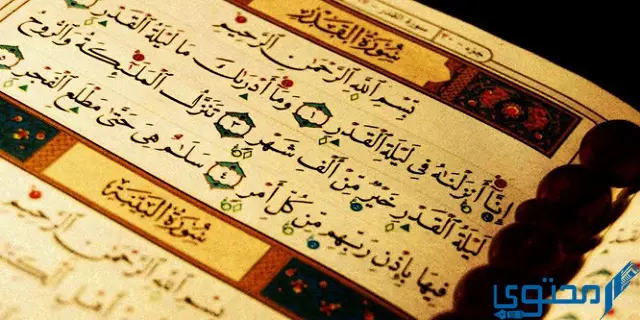 جزء - ٣٠ سورة القدر
سُورَةُ القَدْرِ
بِسْمِ اللَّهِ الرَّحْمَٰنِ الرَّحِيمِ
إِنَّا أَنزَلْنَٰهُ فِي لَيْلَةِ الْقَدْرِ ١ وَمَا أَدْرَىٰكَ مَا لَيْلَةُ الْقَدْرِ
لَيْلَةُ الْقَدْرِ خَيْرٌ مِّنْ أَلْفِ شَهْرٍ ٣ تَنَزَّلُ الْمَلَٰئِكَةُ وَالرُّوحُ
فِيهَا بِإِذْنِ رَبِّهِم مِّن كُلِّ أَمْرٍ ٤ سَلَٰمٌ هِيَ حَتَّىٰ مَطْلَعِ الْفَجْرِ ٥
سُورَةُ البَيِّنَةِ
بِسْمِ اللَّهِ الرَّحْمَٰنِ الرَّحِيمِ
مِنْ أَهْلِ
محتوى